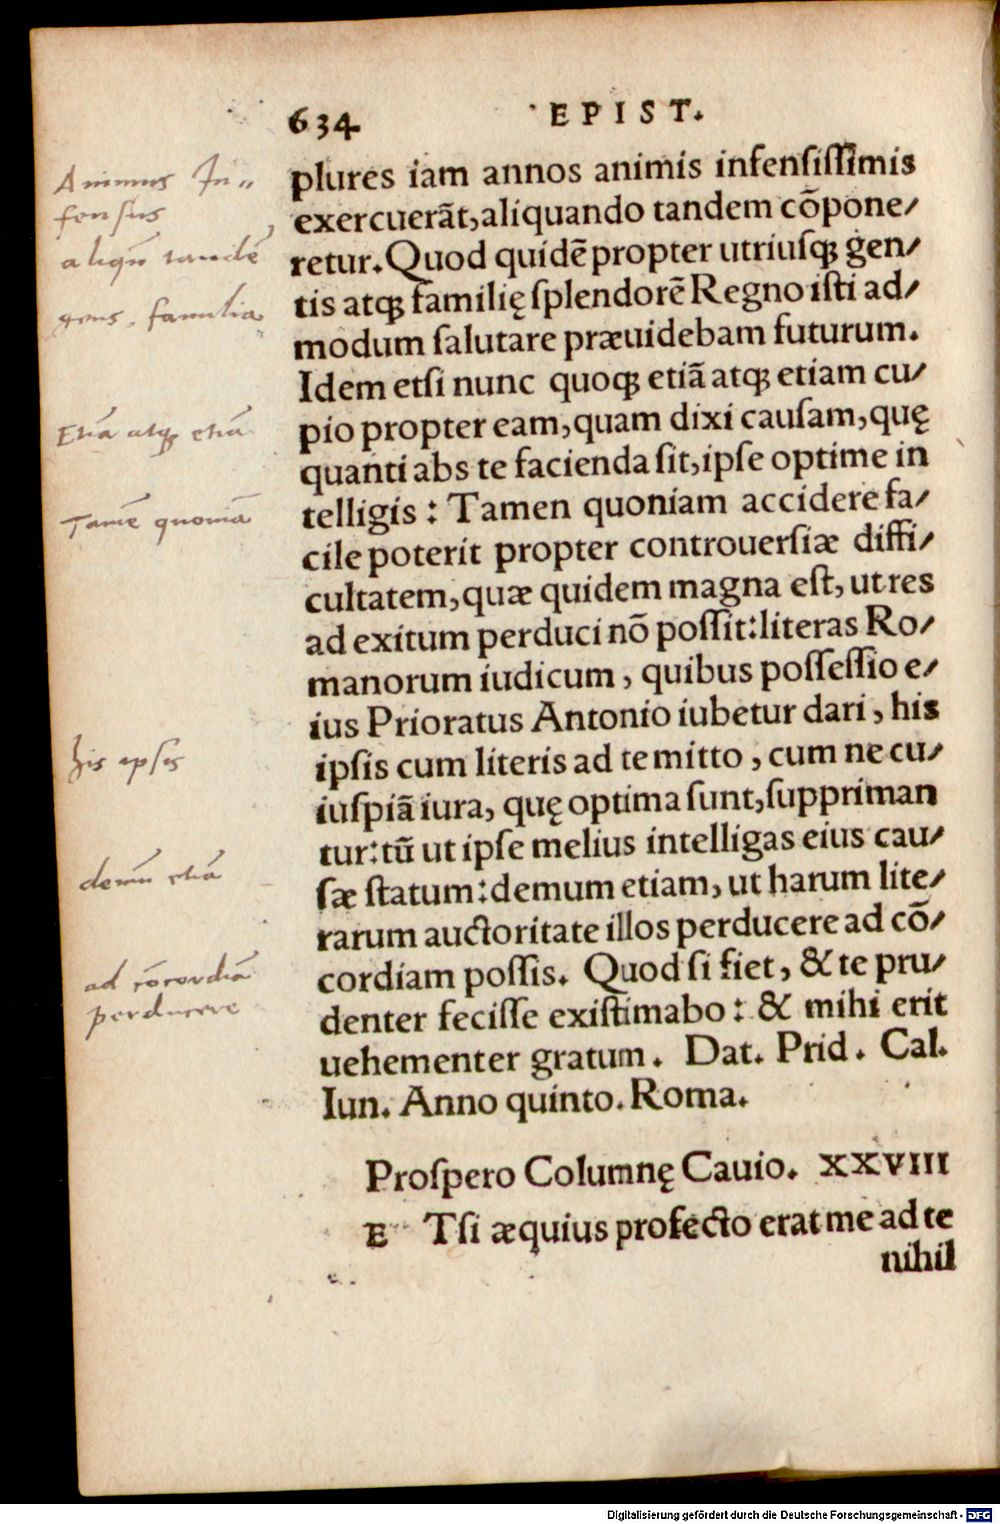 634 EPIST.
plures iam annos animis infensiſſimis
exercuerãt, aliquando tandem cõpone⸗
retur. Quod quidẽ propter utriuſqꝫ gen⸗
tis atqꝫ familię ſplendorẽ Regno iſti ad⸗
modum ſalutare præuidebam futurum.
Idem etſi nunc quoqꝫ etiã atqꝫ etiam cu⸗
pio propter eam, quam dixi cauſam, quę
quanti abs te facienda ſit, ipſe optime in
telligis : Tamen quoniam accidere fa⸗
cile poterit propter controuerſiæ diffi⸗
cultatem, quæ quidem magna eſt, ut res
ad exitum perduci nõ poſſit: literas Ro⸗
manorum iudicum, quibus poſſeſſio e⸗
ius Prioratus Antonio iubetur dari, his
ipſis cum literis ad te mitto, cum ne cu⸗
iuſpiã iura, quę optima ſunt, ſuppriman
tur: tũ ut ipſe melius intelligas eius cau⸗
ſæ ſtatum: demum etiam, ut harum lite⸗
rarum auctoritate illos perducere ad cõ⸗
cordiam poſſis. Quod ſi fiet, & te pru⸗
denter feciſſe exiſtimabo : & mihi erit
uehementer gratum. Dat. Prid. Cal.
Iun. Anno quinto. Roma.
Proſpero Columnę Cauio. XXVIII
E Tſi æquius profecto erat me ad te
nihil
Animus In⸗
fensus
aliqñ tandẽ
gens. familia
Etiã atqꝫ etiã
Tamẽ quoniã
his ipsis
demũ etiã
ad cõcordiã
perducere
Digitalisierung gefördert durch die Deutsche Forschungsgemeinschaft - DFG